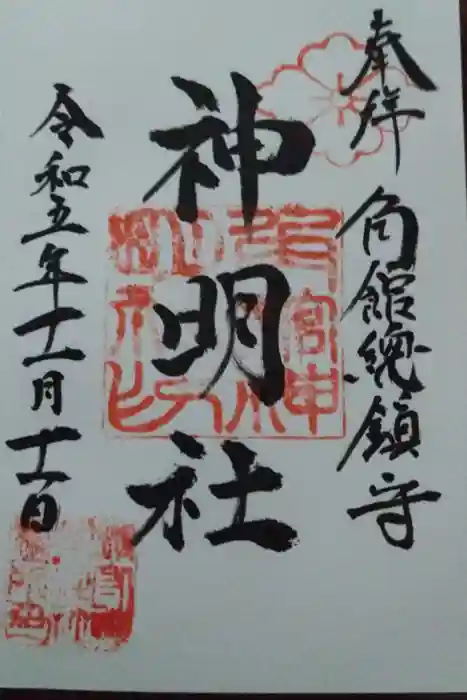 奉拝 角館總鎮守
神明社
令和五年十一月十一日